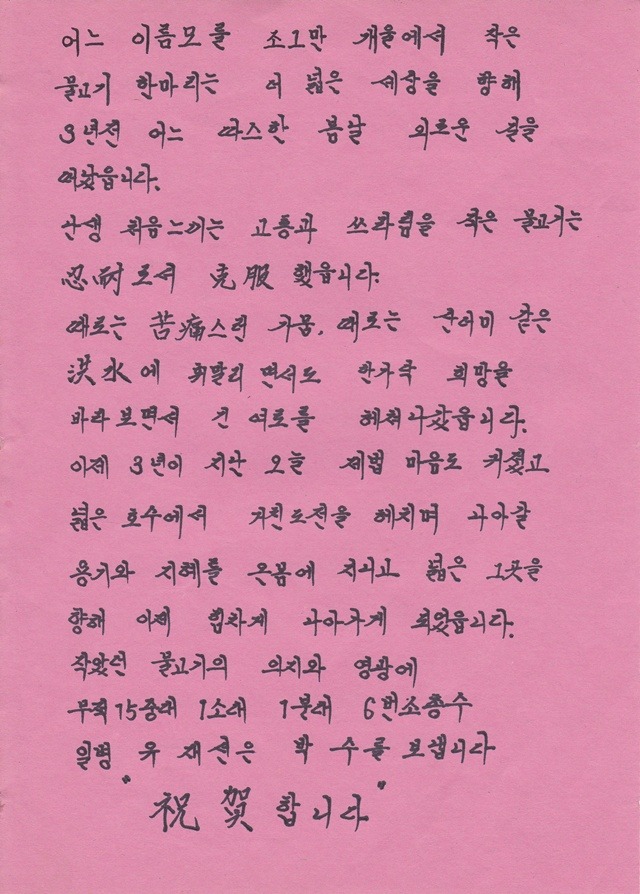 어느 이름모를 조그만 개울에서 작은
물고기 한마리는 더 넓은 세상을 향해
3년전 어느 따스한 봄날 외로운 길을
떠났읍니다.
난생 처음느끼는 고통과 쓰라림을 작은 물고기는
忍耐로서 克服했읍니다.
때로는 苦痛스런 가뭄, 때로는 산더미 같은
洪水에 휘말리면서도 한가닥 희망을
바라보면서 긴 여로를 헤쳐나갔읍니다.
이제 3년이 지난 오늘 제법 마음도 커졌고
넓은 호수에서 거친도전을 헤치며 나아갈
용기와 지혜를 온몸에 지니고 넓은 그곳을
향해 이제 힘차게 나아가게 되었읍니다.
작았던 물고기의 의지와 영광에
무적 15중대 1소대 1분대 6번소총수
일병 유 재선은 박 수를 보냅니다
"祝 賀합니다"